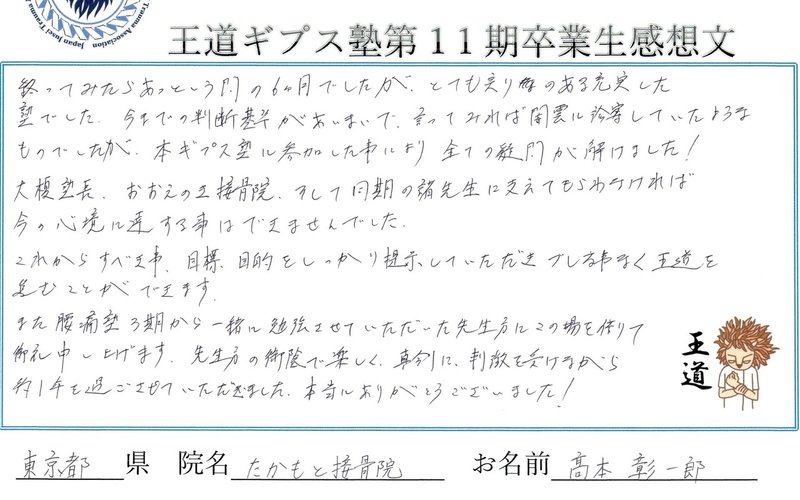 Trauma Association Japan Jusei Trauma
王道ギプス塾第11期卒業生感想文
終ってみたらあっという間の6ヶ月でしたが、とても実り多のある充実した
塾でした。今までの判断基準があいまいで、言ってみれば闇雲に診察していたような
ものでしたが、本ギプス塾に参加した事により全ての疑問が解けました!
大榎塾長、おおえのき接骨院、そして同期の諸先生に支えてもらわなければ
今の心境に達する事はできませんでした。
これからすべき事、目標、目的をしっかり提示していただきブレる事なく王道を
進むことができます。
また腰痛塾3期から一緒に勉強させていただいた先生方にこの場を借りて
御礼申し上げます。先生方の御陰で楽しく、真剣に、刺激を受けながら
約1年を過ごさせていただきました。本当にありがとうございました!
王道
東京都 県 院名 たかもと接骨院 お名前 髙本 彰一郎